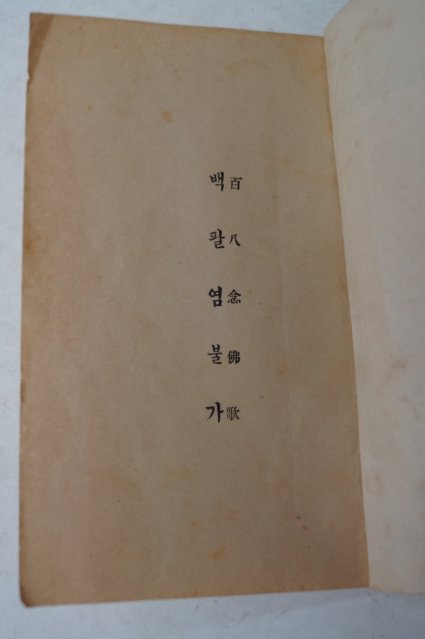 백팔염불가
百八念佛歌